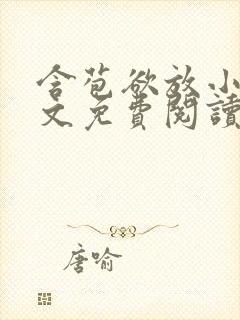 含苞欲放小
文免費閱讀
唐喻